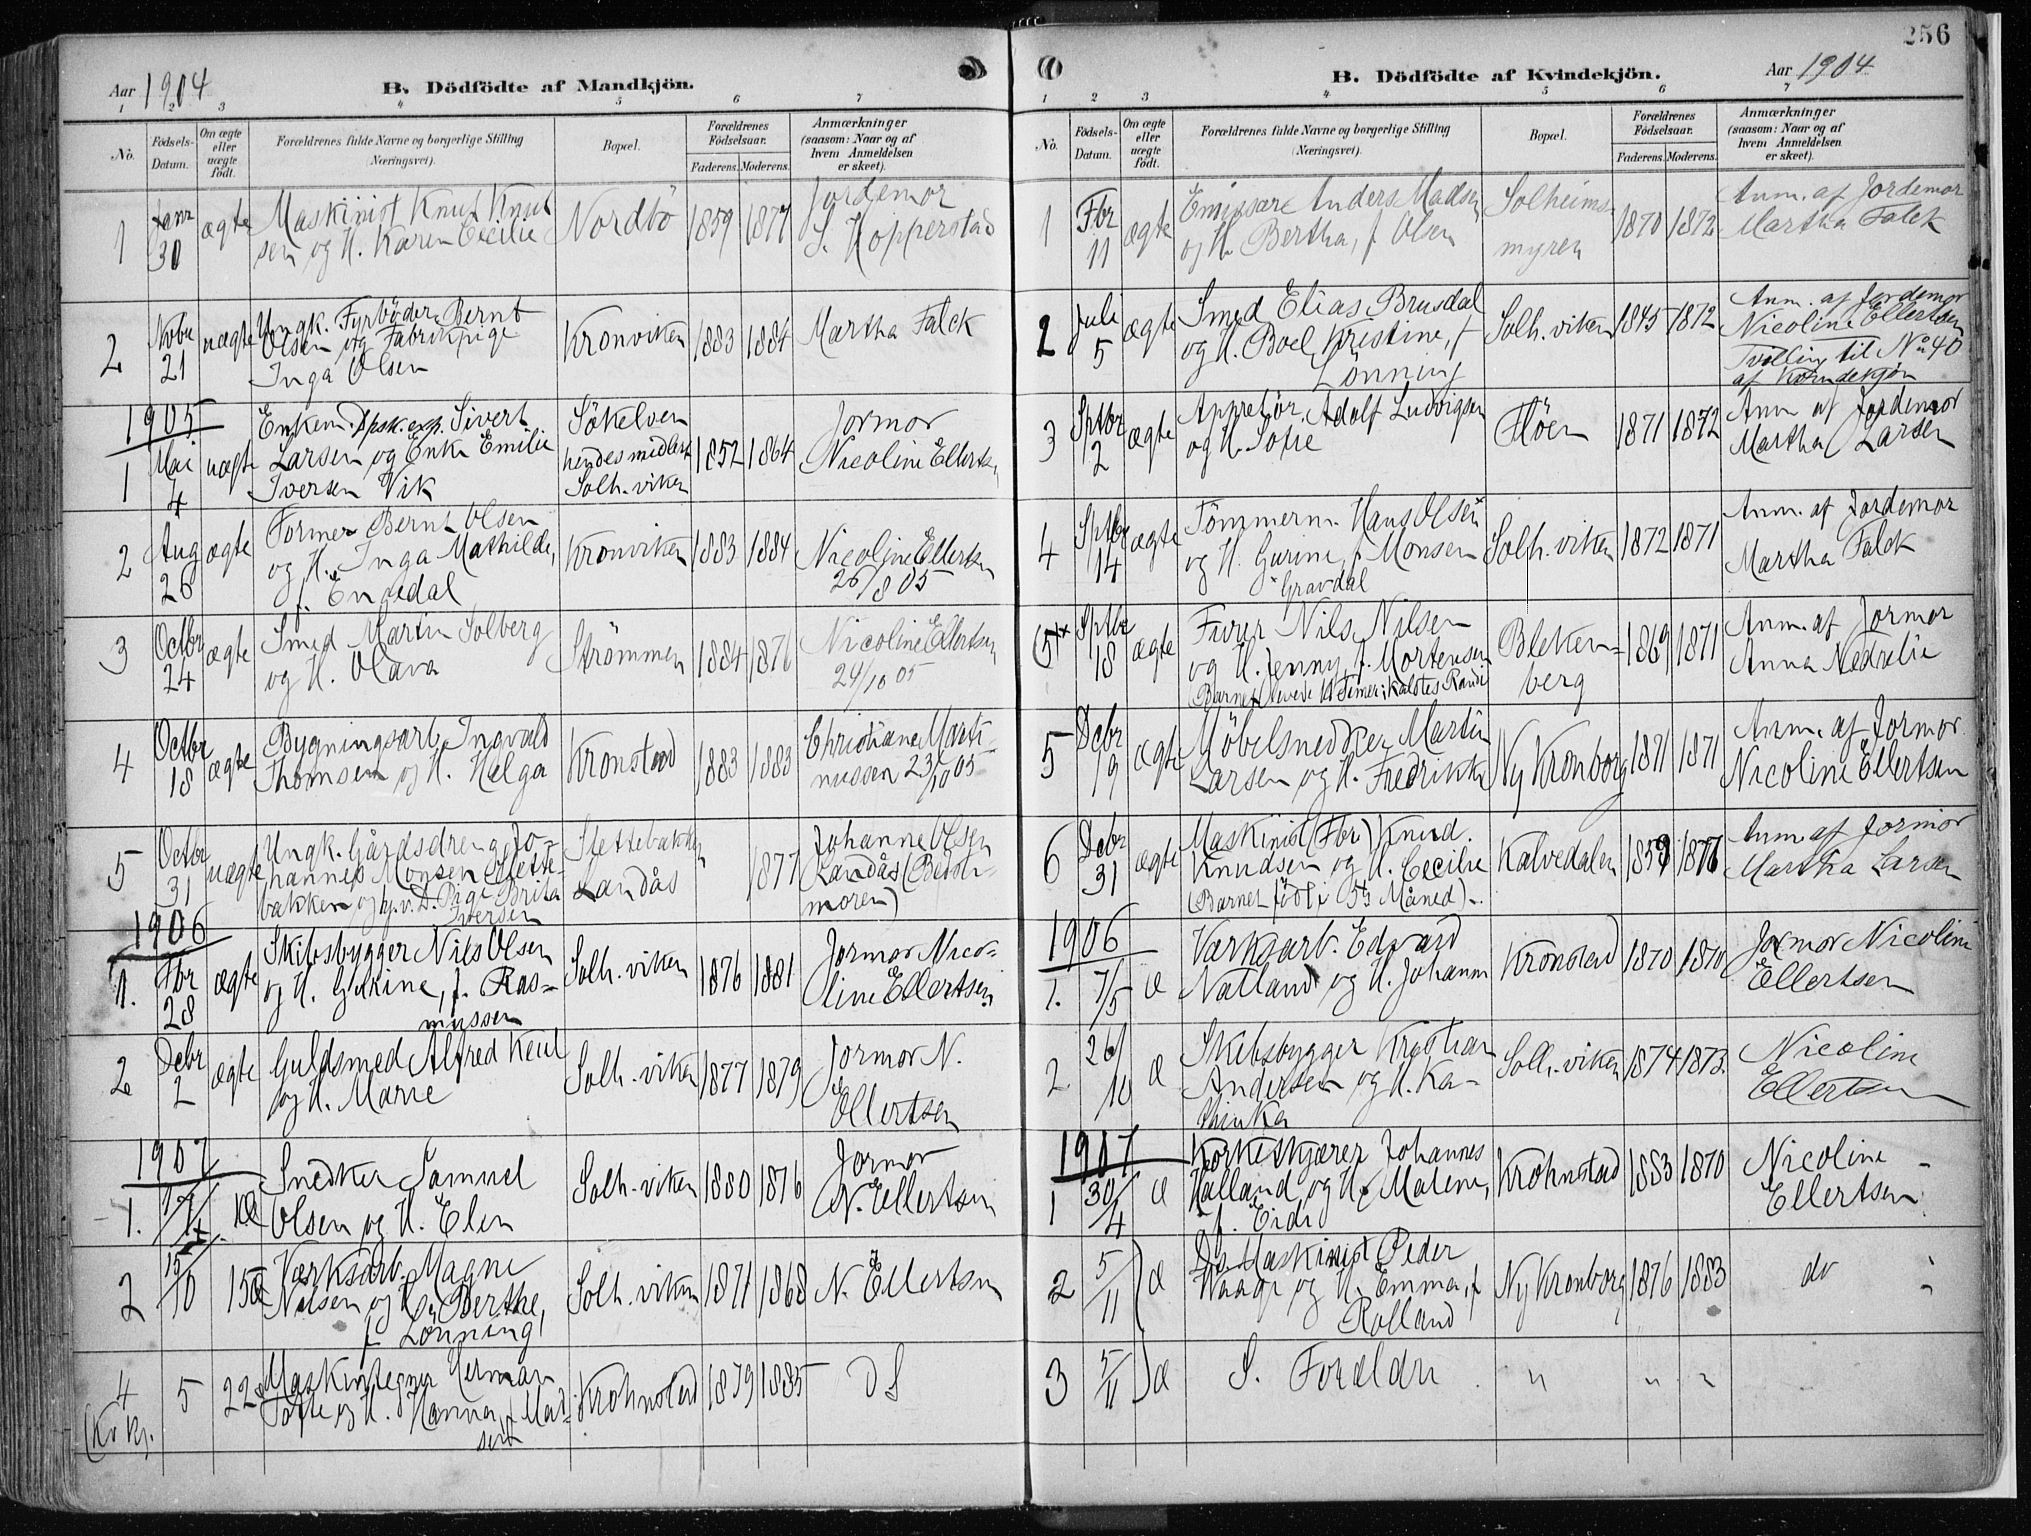 256
Aar 1904
B. Dödfödte af Mandkjön.
1 2 3 4 5 6 7
No.
Födsels-
Datum.
Om ægte
eller
uægte
födt.
Forældrenes fulde Navne og borgerlige Stilling
(Næringsvei).
Bopæl.
Forældrenes
Födselsaar.
Faderens. Moderens.
Anmærkninger
(saasom: Naar og af
hvem Anmeldelsen
er skeet).
1 Janr 30 ægte
Maskinist Knut Knut
sen og H. Karen Cecilie
Nordbö 1859 1877
Jordemor
S. Hopperstad
2 Novbr 21 uægte
Ungk. Fyrböder Bernt
Olsen og Fabrikpige
Inga Olsen
Kronviken 1883 1884 Martha Falck
1905
1 Mai 4 uægte
Enkem. Dpsk.exp. Sivert
Larsen og Enke Emilie
Iversen Vik
Sökelven
hendes midlert
Solh.viken
1852 1864
Jormor
Nicoline Ellertsen
2 Aug 26 ægte
Former Bernt Olsen
og H. Inga Mathilde,
f. Engedal
Kronviken 1883 1884
Nicoline Ellertsen
26/8 05
3 Octbr 24 ægte
Smed Martin Solberg
og H. Olava
Strömmen 1884 1876
Nicoline Ellertsen
24/10 05
4 Octbr 18 ægte
Bygningsarb. Ingvald
Thomsen og H. Helga
Kronstad 1883 1883
Christiane Marti-
nussen 23/10 05
5 Octbr 31 uægte
Ungk. Gårdsdreng Jo-
hannes Monsen Slette-
bakken og Pige Brita
Iversen
Slettebakken
Landås
1877
Johanne Olsen
Landås (Bedste-
moren)
1906
1. Fbr 28 ægte
Skibsbygger Nils Olsen
og H. Gurine, f. Ras-
mussen
Solh.viken 1876 1881
Jormor Nico-
line Ellertsen
2 Debr 2 ægte
Guldsmed Alfred Keul
og H. Marie
Solh.viken 1877 1879
Jormor N.
Ellertsen
1907
1.
Snedker Samuel
Olsen og H. Elen
Solh.viken 1880 1876
Jormor
N. Ellertsen
2 15/10
Værksarb. Magne
Nilsen og H. Berthe,
f. Lönning
Solh.viken 1871 1868 N. Ellertsen
4 5 228
(Kv kj.
Maskintegner Herman
Tofte og H. Hanna, f. Mad-
sen
Krohnstad 1879 1885 DS
Aar 1904
B. Dödfödte af Kvindekjön.
1 2 3 4 5 6 7
No.
Födsels-
Datum.
Om ægte
eller
uægte
födt.
Forældrenes fulde Navne og borgerlige Stilling
(Næringsvei).
Bopæl.
Forældrenes
Födselsaar.
Faderens. Moderens.
Anmærkninger
(saasom: Naar og af
hvem Anmeldelsen
er skeet).
1 Fbr 11 ægte
Emissære Anders Madsen
og H. Bertha, f. Olsen
Solheims-
myren
1870 1872
Anm. af Jordemor
Martha Falck
2 Juli 5 ægte
Smed Elias Brusdal
og H. Boel Kristine, f
Lönning
Solh.viken 1845 1872
Anm. af Jordemor
Nicoline Ellertsen
Tvilling til No 40
af Kvindekjön
3 Sptbr 2 ægte
Appretör Adolf Ludvigsen
og H. Sofie
Flöen 1871 1872
Anm. af Jordemor
Martha Larsen
4 Sptbr 14 ægte
Tömmerm. Hans Olsen
og H. Gurine, f. Monsen
Gravdal
Solh.viken 1872 1871
Anm. af Jordemor
Martha Falck
(5+ Sptbr 18 ægte
Furer Nils Nilsen
og H. Jenny, f. Mortensen
Bleken-
berg
1869 1871
Anm. af Jormor
Anna Nedrelie
5 Debr 19 ægte
Möbelsnedker Martin
Larsen og H. Fredrikke
Ny Kronborg 1871 1871
Anm. af Jormor
Nicoline Ellertsen
6 Debr 31 ægte
Maskinist (Fbr) Knud
Knudsen og H. Cecilie
(Barnet födt i 5te Måned).
Kalvedalen 1859 1877
Anm. af Jormor
Martha Larsen
1906
1. 7/5 Æ
Værksarb. Edvard
Natland og H. Johanne
Kronstad 1870 1870
Jormor Nicoline
Ellertsen
2 26/10 Æ
Skibsbygger Kristian
Andersen og H. Ka-
thinka
Solh.viken 1874 1873.
Nicoline
Ellertsen
1907
1 30/4 Æ
Korkeskjærer Johannes
Halland og H. Malene,
f. Eide
Krohnstad 1883 1870
Nicoline
Ellertsen
2 5/11 Æ
Ds Maskinist Peder
Waage og H. Emma, f
Rolland
Ny Kronborg 1876 1883 do
3 5/11 Æ
S. Forældre " " "